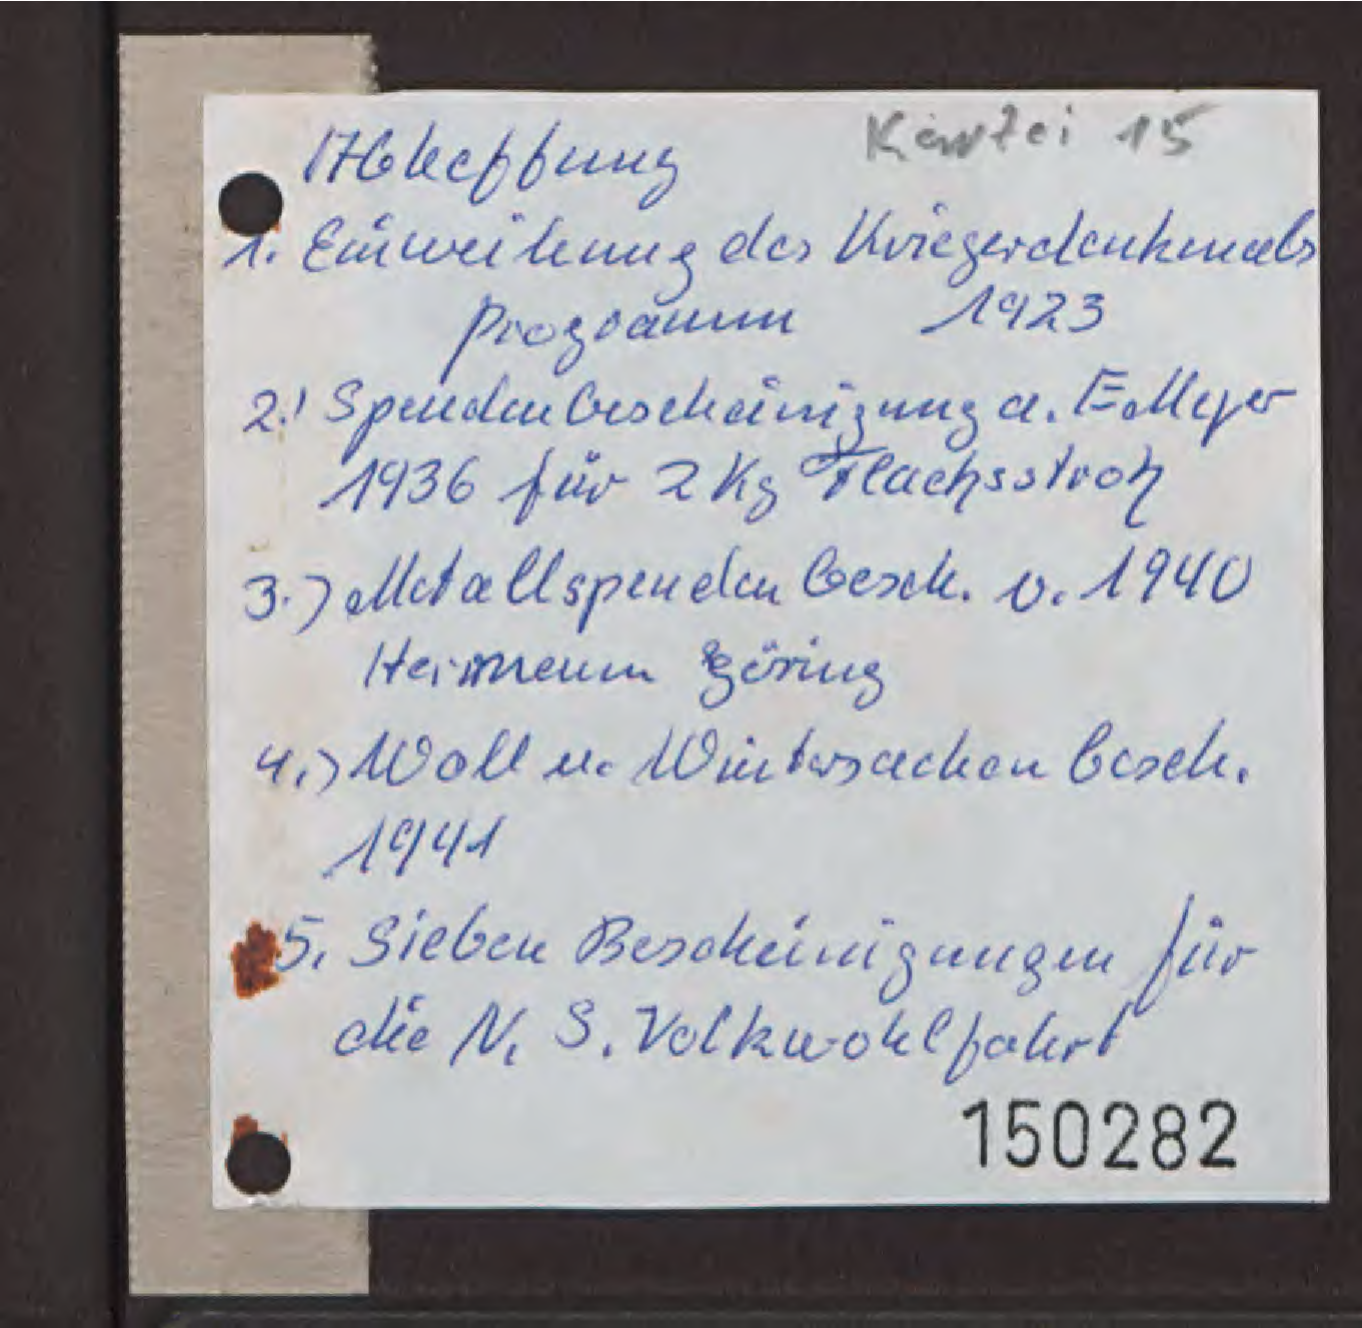 Kartei 15
Abheftung
1. Einweihung des Kriegerdenkmals
Programm 1923
2.) Spendenbescheinigung a. E. Meyer
1936 für 2 Kg Flachsstroh
3.) Metallspenden besch. v. 1940
Hermann Göring
4.) Woll u. Wintersachen besch.
1941
5. Sieben Bescheinigungen für
die N. S. Volkwohlfahrt
150282